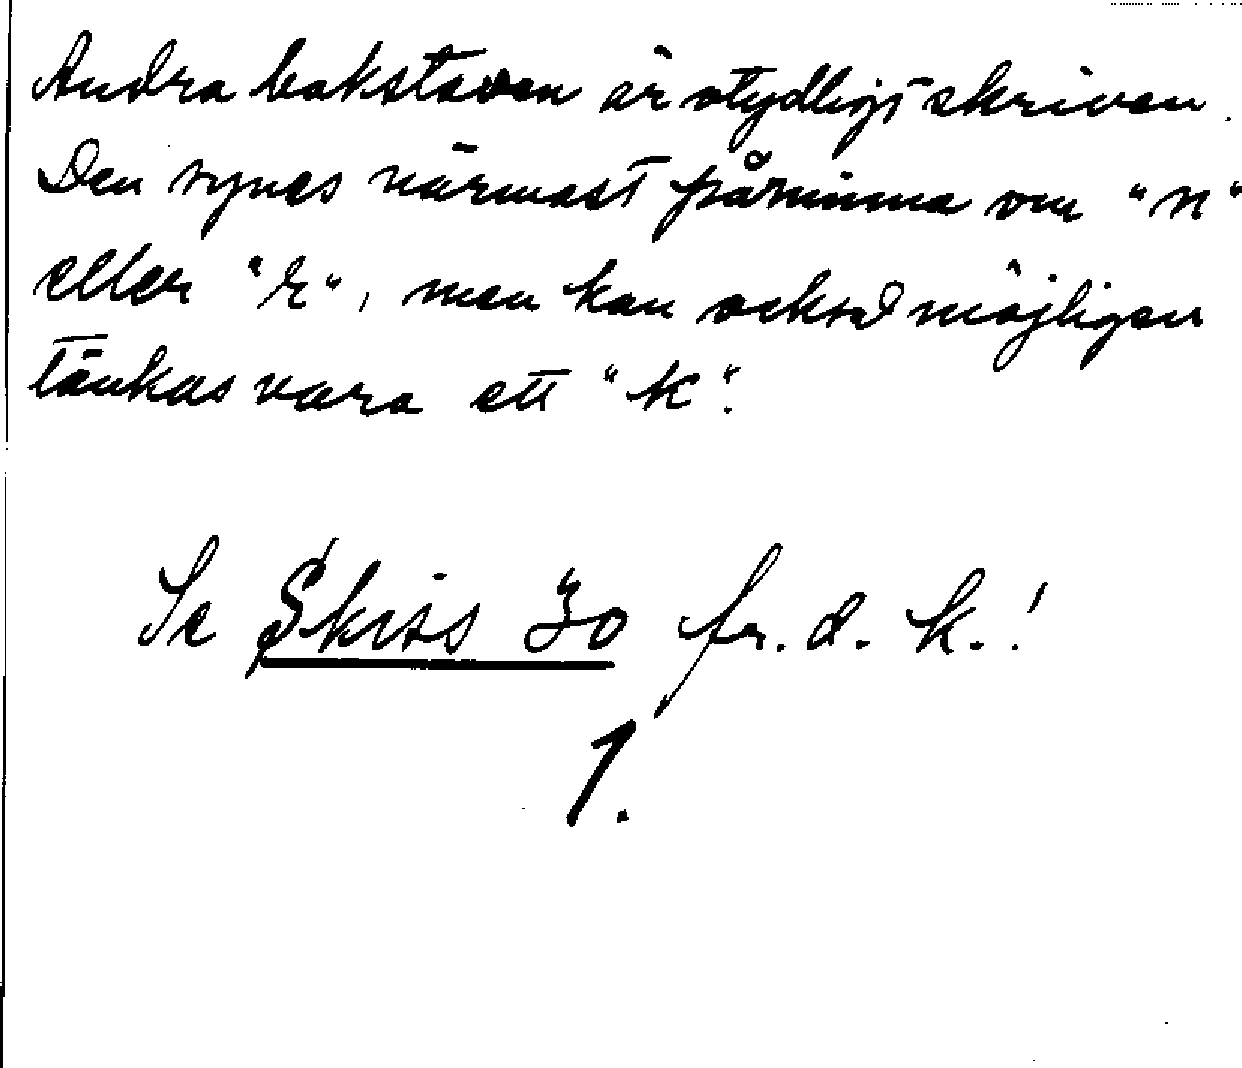 Andra bokstaven är otydligt skriven.
Den synes närmast påminna om "n"
eller "r", men kan också möjligen
tänkas vara ett "k".
Se Skiss 30 fr. d. k.!
1.